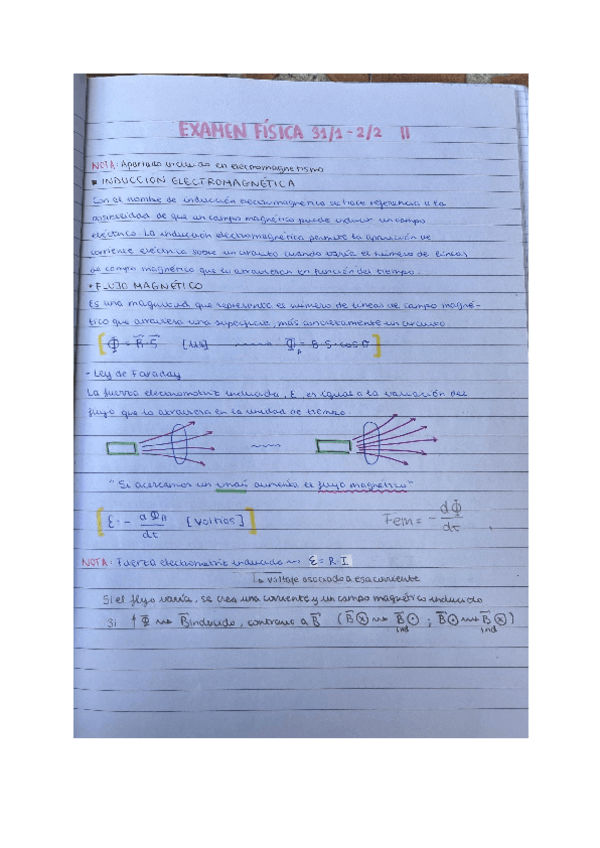 EXAMEN FÍSICA 31/1 - 2/2 II
NOTA: Apartado incluido en electromagnetismo
▪ INDUCCIÓN ELECTROMAGNÉTICA
Con el nombre de inducción electromagnética se hace referencia a la
posibilidad de que un campo magnético puede inducir un campo
eléctrico. La inducción electromagnética permite la aparición de
corriente eléctrica sobre un circuito cuando varía el número de líneas
de campo magnético que lo atraviesan en función del tiempo.
• FLUJO MAGNÉTICO
Es una magnitud que representa el número de líneas de campo magné-
tico que atraviesa una superficie, más concretamente un circuito
[Φ = B⃗·S⃗ [Wb] ⟿ Φ = B·S·cosθ]
- Ley de Faraday
La fuerza electromotriz inducida, ε, es igual a la variación del
flujo que la atraviesa en la unidad de tiempo.
"Si acercamos un imán aumenta el flujo magnético"
[ε = - dΦ/dt [Voltios]] Fem = - dΦ/dt
NOTA: Fuerza electromotriz inducida ⟿ ε = R·I
↳ voltaje asociado a esa corriente
Si el flujo varía, se crea una corriente y un campo magnético inducido
Si ↑ Φ ⟿ B⃗ inducido, contrario a B⃗ (B⃗⊗ ⟿ B⃗ind ⊙ ; B⃗⊙ ⟿ B⃗ind ⊗)